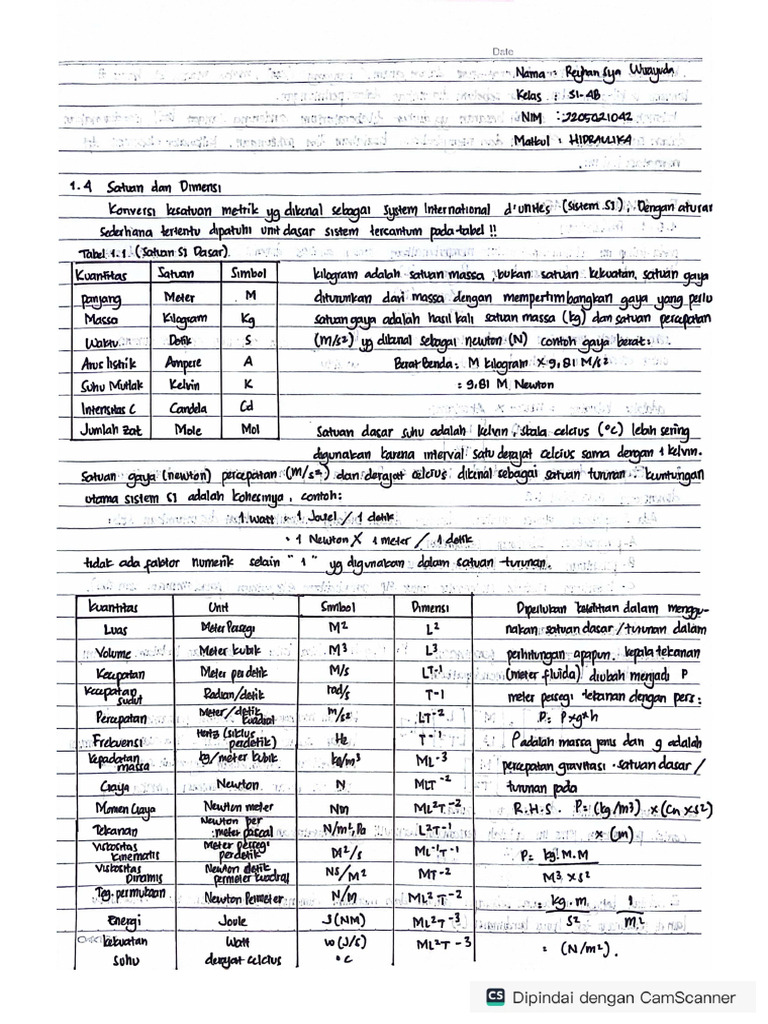 Date
Nama : Reyhan Sya Wirayuda
Kelas : SI-4B
NIM : 2205021042
Matkul : HIDRAULIKA
1.4 Satuan dan Dimensi
Konversi kesatuan metrik yg dikenal sebagai System International d'unites (Sistem SI), Dengan aturan
Sederhana tertentu dipatuhi unit dasar sistem tercantum pada tabel !!
Tabel 1.1. (Satuan SI Dasar).
Kuantitas Satuan Simbol
Panjang Meter M
Massa Kilogram Kg
Waktu Detik S
Arus listrik Ampere A
Suhu Mutlak Kelvin K
Intensitas C Candela Cd
Jumlah Zat Mole Mol
kilogram adalah satuan massa, bukan satuan kekuatan, satuan gaya
diturunkan dari massa dengan mempertimbangkan gaya yang perlu
satuan gaya adalah hasil kali satuan massa (kg) dan satuan percepatan
(m/s²) yg dikenal sebagai newton (N) contoh gaya berat:
Berat Benda : M kilogram x 9,81 M/s²
= 9,81 M Newton
Satuan dasar suhu adalah kelvin, skala celcius (°c) lebih sering
digunakan karena interval satu derajat celcius sama dengan 1 kelvin.
Satuan gaya (newton) percepatan (m/s²) dan derajat celcius dikenal sebagai satuan turunan. keuntungan
utama sistem SI adalah kohesinya, contoh:
1 watt = 1 Joule / 1 detik
= 1 Newton X 1 meter / 1 detik
tidak ada faktor numerik selain "1" yg digunakan dalam satuan turunan.
Kuantitas Unit Simbol Dimensi
Luas Meter Persegi M² L²
Volume Meter kubik M³ L³
Kecepatan Meter per detik M/s LT-1
Kecepatan Sudut Radian/detik rad/s T-1
Percepatan Meter/detik kuadrat m/s² LT-2
Frekuensi Hertz (siklus perdetik) Hz T-1
Kepadatan massa kg/meter kubik kg/m³ ML-3
Gaya Newton N MLT-2
Momen Gaya Newton meter Nm ML²T-2
Tekanan Newton per meter pascal N/m², Pa L²T-1
Viskositas kinematis Meter persegi perdetik M²/s ML-1T-1
Viskositas Dinamis Newton detik permeter kuadrat NS/M² MT-2
Teg. permukaan Newton Permeter N/m ML²T-2
Energi Joule J (NM) ML²T-3
kekuatan Watt w (J/s) ML²T-3
Suhu derajat celcius °C
Diperlukan ketelitian dalam menggu-
nakan satuan dasar / turunan dalam
perhitungan apapun. kepala tekanan
(meter fluida) diubah menjadi P
meter persegi tekanan dengan pers:
P= P x g x h
P adalah massa jenis dan g adalah
percepatan gravitasi. satuan dasar /
turunan pada
R.H.S. P= (kg/m³) x (Cn x s²)
x (m)
P= kg. M. M
M³ x s²
= kg. m. 1
s² m²
= (N/m²).
CS Dipindai dengan CamScanner